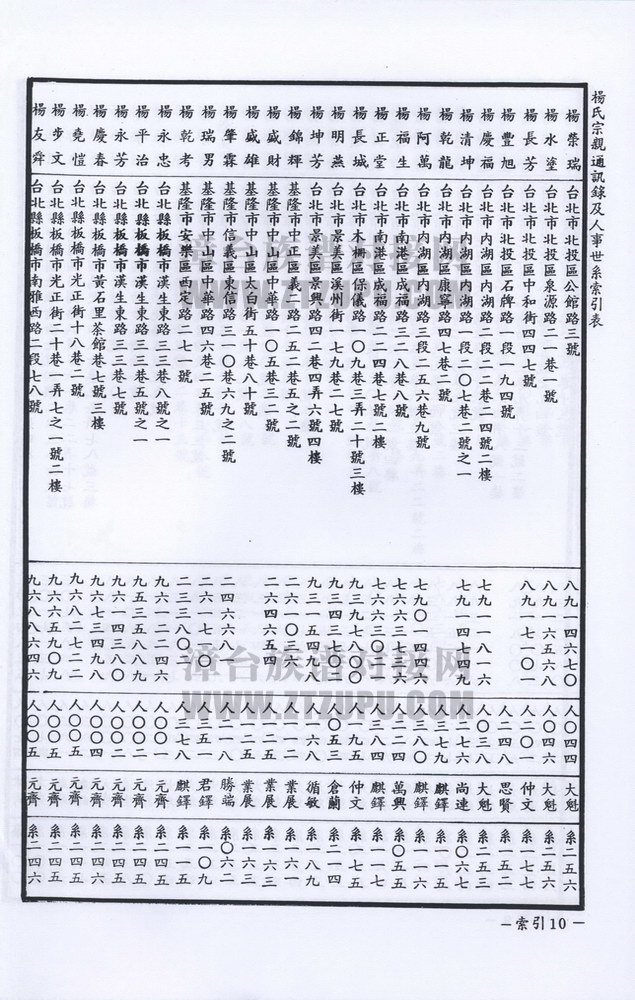 楊氏宗親通訊錄及人事世系索引表
楊榮瑞 台北市北投區公館路三號 八九一四六七〇 人〇四四 大魁 系二五六
楊水塗 台北市北投區泉源路二一巷一號 八九一六五六八 人〇四四 大魁 系二五六
楊長芳 台北市北投區中和街四四七號 八九一七一〇一 人二〇一 仲文 系一七七
楊豐旭 台北市北投區石牌路一段一九四號 人二四八 思賢 系一五二
楊慶福 台北市內湖區內湖路二段二二巷二四號二樓 七九一一八一六 人〇三八 大魁 系二五三
楊清坤 台北市內湖區內湖路一段二〇七巷二號之一 七九一四七四九 人二七六 尚連 系〇六七
楊乾龍 台北市內湖區康寧路四七巷二號 人三七五 麒鐸 系一一五
楊阿萬 台北市內湖區內湖路三段二五六巷九號 七九〇一四四一 人三八〇 麒鐸 系一一六
楊福生 台北市南港區成福路三二八巷八號 人一二四 萬興 系〇五五
楊正堂 台北市南港區成福路二二四巷七號二樓 人三八四 麒鐸 系一一七
楊長城 台北市木柵區保儀路一〇九巷三弄二十號三樓 九三九七八〇〇 人一九五 仲文 系一七五
楊明燕 台北市景美區溪州街一七九巷二七號 人〇五三 倉蘭 系二一四
楊坤芳 台北市景美區景興路四二巷四弄六號四樓 九三一五四九九 人一六八 循敏 系一八九
楊錦輝 基隆市中正區義二路二五二巷五之二號 人一一二 業展 系一六一
楊盛財 基隆市中山區中華路一〇五巷三二號 人一二五 業展 系一六三
楊盛雄 基隆市中山區太白街五十巷八十號 人一二五 業展 系一六三
楊肇霖 基隆市信義區東信路三一〇巷六九之二號 二四六六八一 人二一八 勝端 系〇六二
楊瑞男 基隆市中山區中華路四六巷二五號 人三五一 君鐸 系一〇九
楊乾考 基隆市安樂區西定路二七一號 二三三八〇二 人三七八 麒鐸 系一一五
楊永忠 台北縣板橋市漢生東路三三巷八號之一 九六一二二四六 人〇〇一 元齊 系二四五
楊平治 台北縣板橋市漢生東路三三巷五號之一 九五三五八八七 人〇〇二 元齊 系二四五
楊永芳 台北縣板橋市漢生東路三三巷七號 九六一四三八〇 人〇〇二 元齊 系二四五
楊慶春 台北縣板橋市黃石里茶館巷七號三樓 九六七三四九八 人〇〇四 元齊 系二四六
楊堯愷 台北縣板橋市光正街十八巷二號 九六八二七二二 人〇〇五 元齊 系二四五
楊步文 台北縣板橋市光正街二十巷一弄七之一號二樓 九六六五九〇九 人〇〇五 元齊 系二四五
楊友舜 台北縣板橋市南雅西路二段七八號 九六八八六四六 人〇〇五 元齊 系二四六
漳台族谱对接网
WWW.ZTZUPU.COM
漳台族谱对接网
WWW.ZTZUPU.COM
－索引10－